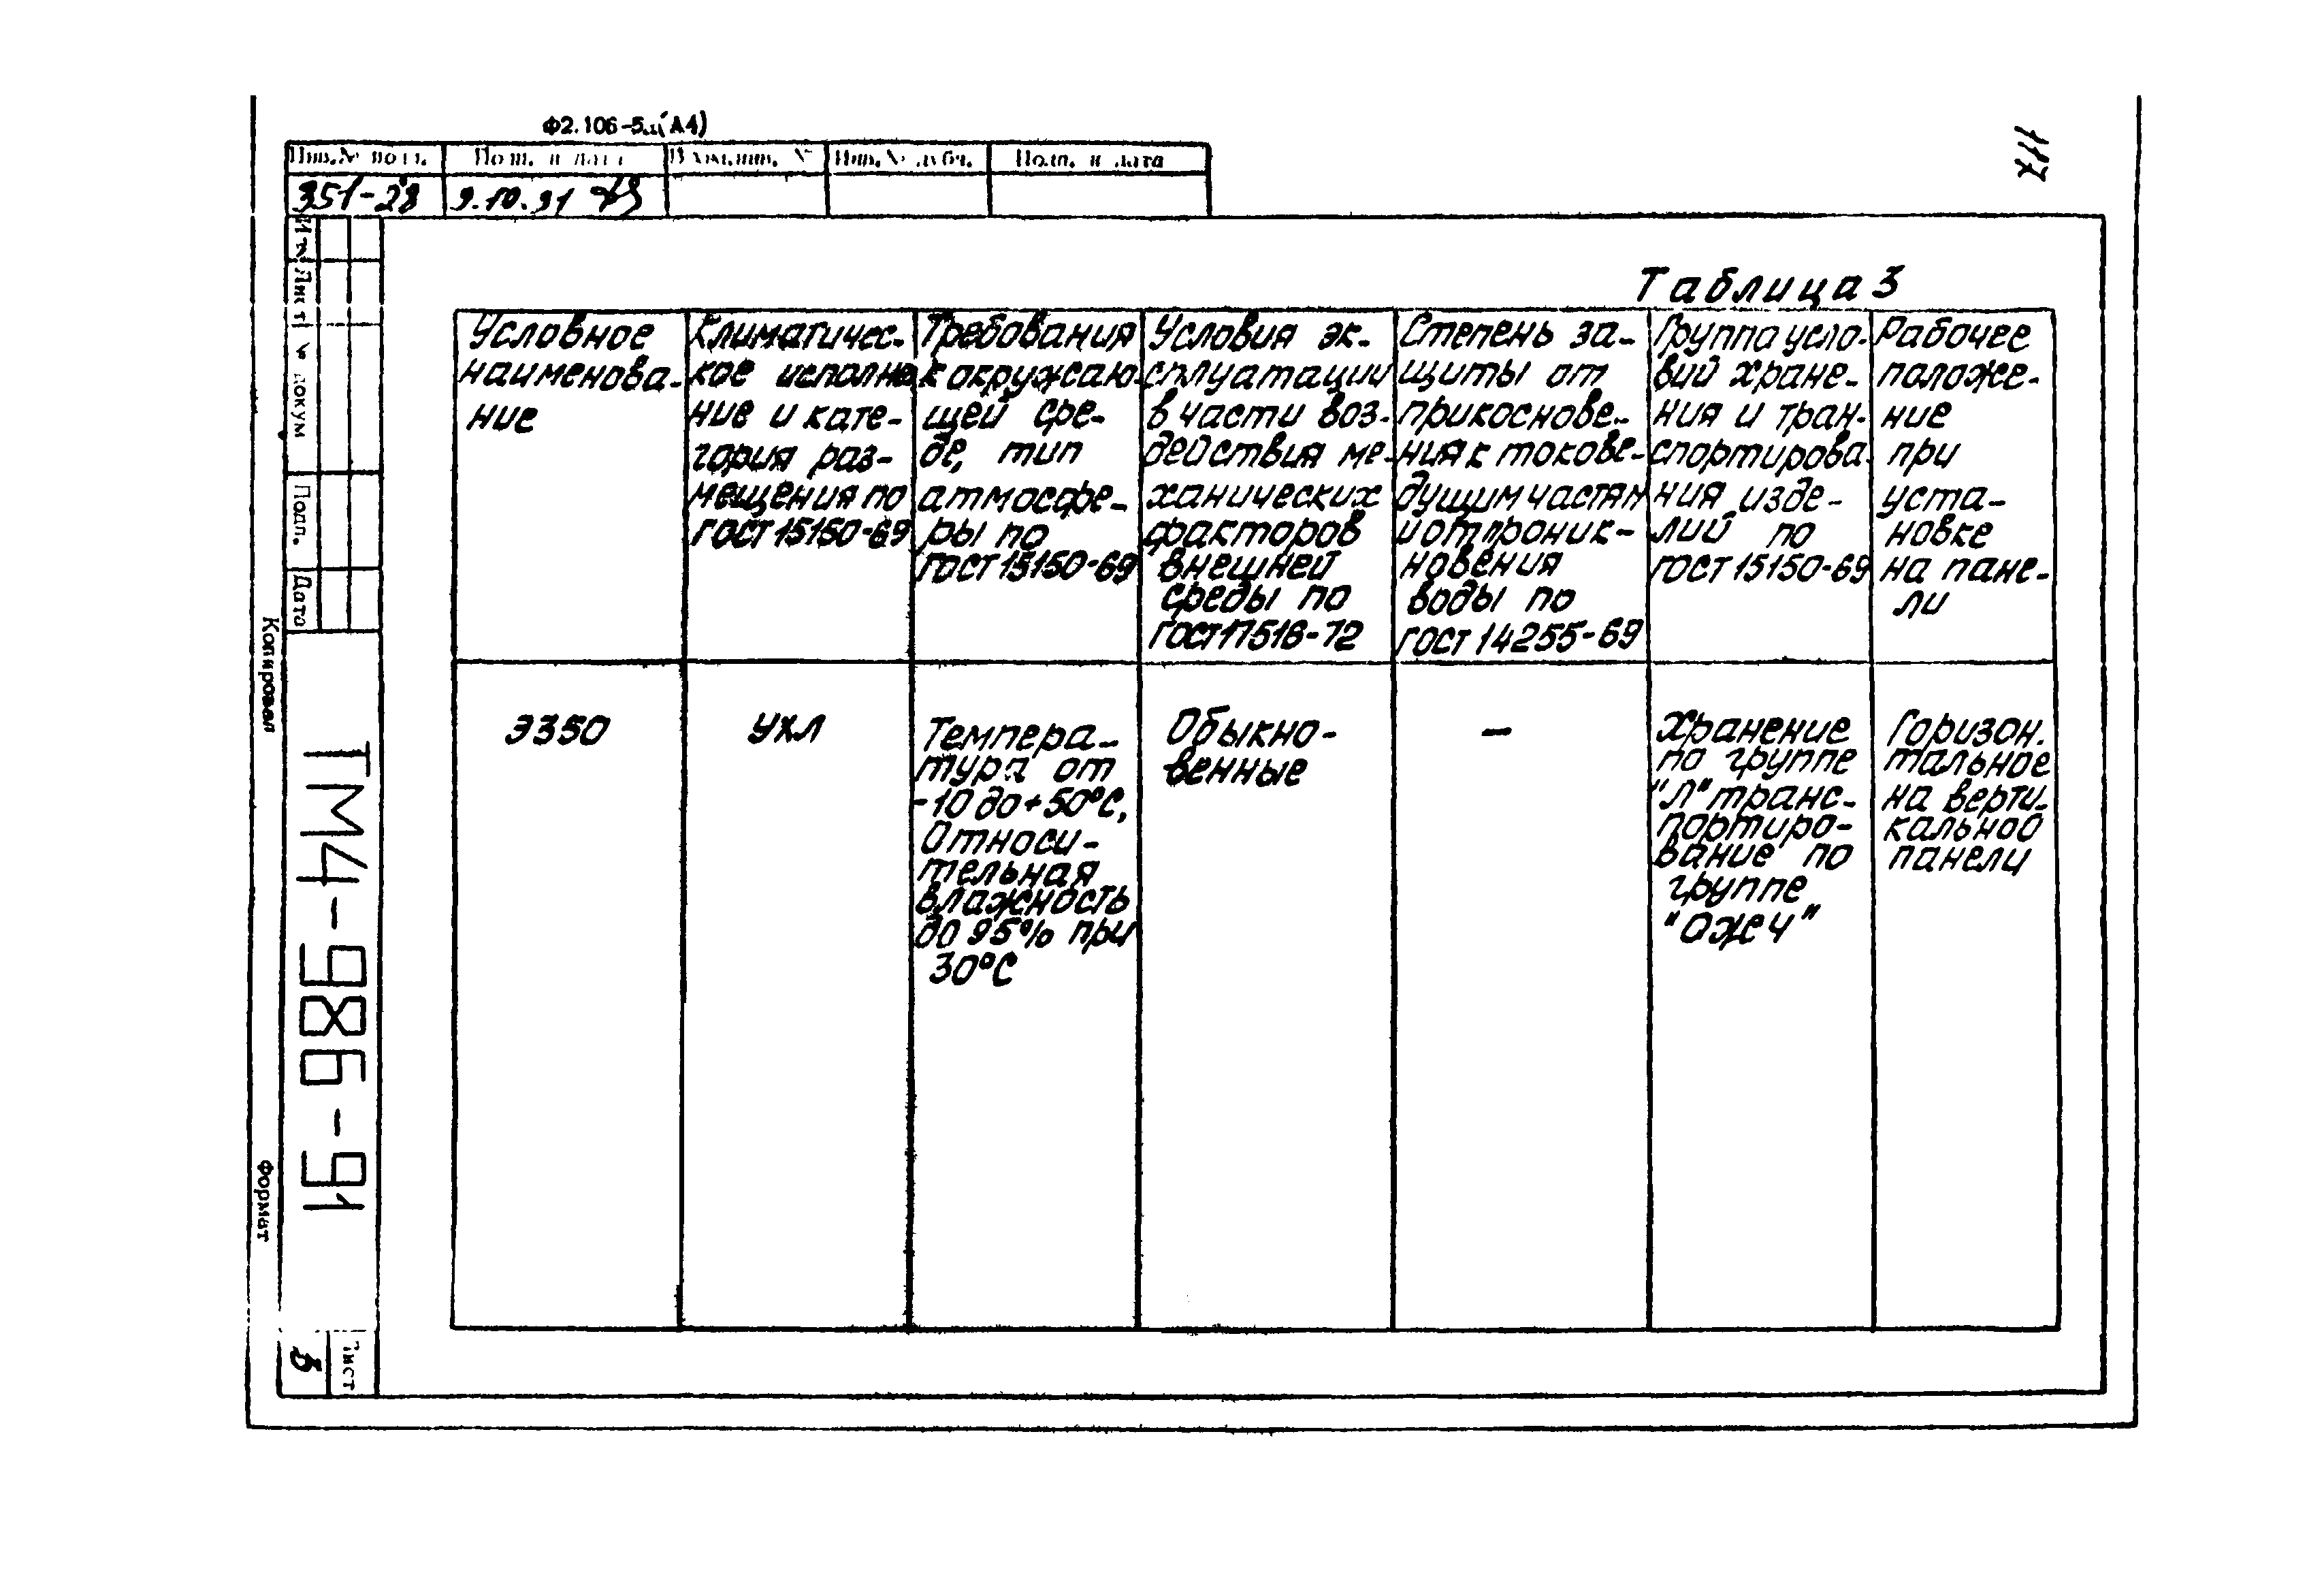 Ф2.106-5а(А4)
117
Инв.№ подл.
Подп. и дата
Взам.инв. №
Инв.№ дубл.
Подп. и дата
351-28
9.10.91
Лист
№ докум
Подп.
Дата
Копировал
Формат
ТМ4-986-91
Лист
Таблица 3
Условное
наименова-
ние
Климатичес-
кое исполне
ние и кате-
гория раз-
мещения по
ГОСТ 15150-69
Требования
к окружаю-
щей сре-
де, тип
атмосфе-
ры по
ГОСТ 15150-69
Условия эк-
сплуатации
в части воз-
действия ме-
ханических
факторов
внешней
среды по
ГОСТ 17516-72
Степень за-
щиты от
прикоснове-
ния к токове-
дущим частям
и от проник-
новения
воды по
ГОСТ 14255-69
Группа усло-
вий хране-
ния и тран-
спортирова-
ния изде-
лий по
ГОСТ 15150-69
Рабочее
положе-
ние
при
уста-
новке
на пане-
ли
Э350
УХЛ
Темпера-
тура от
-10 до +50°С,
Относи-
тельная
влажность
до 95% при
30°С
Обыкно-
венные
–
Хранение
по группе
"Л" транс-
портиро-
вание по
группе
"ОЖ4"
Горизон.
тальное
на верти-
кальной
панели